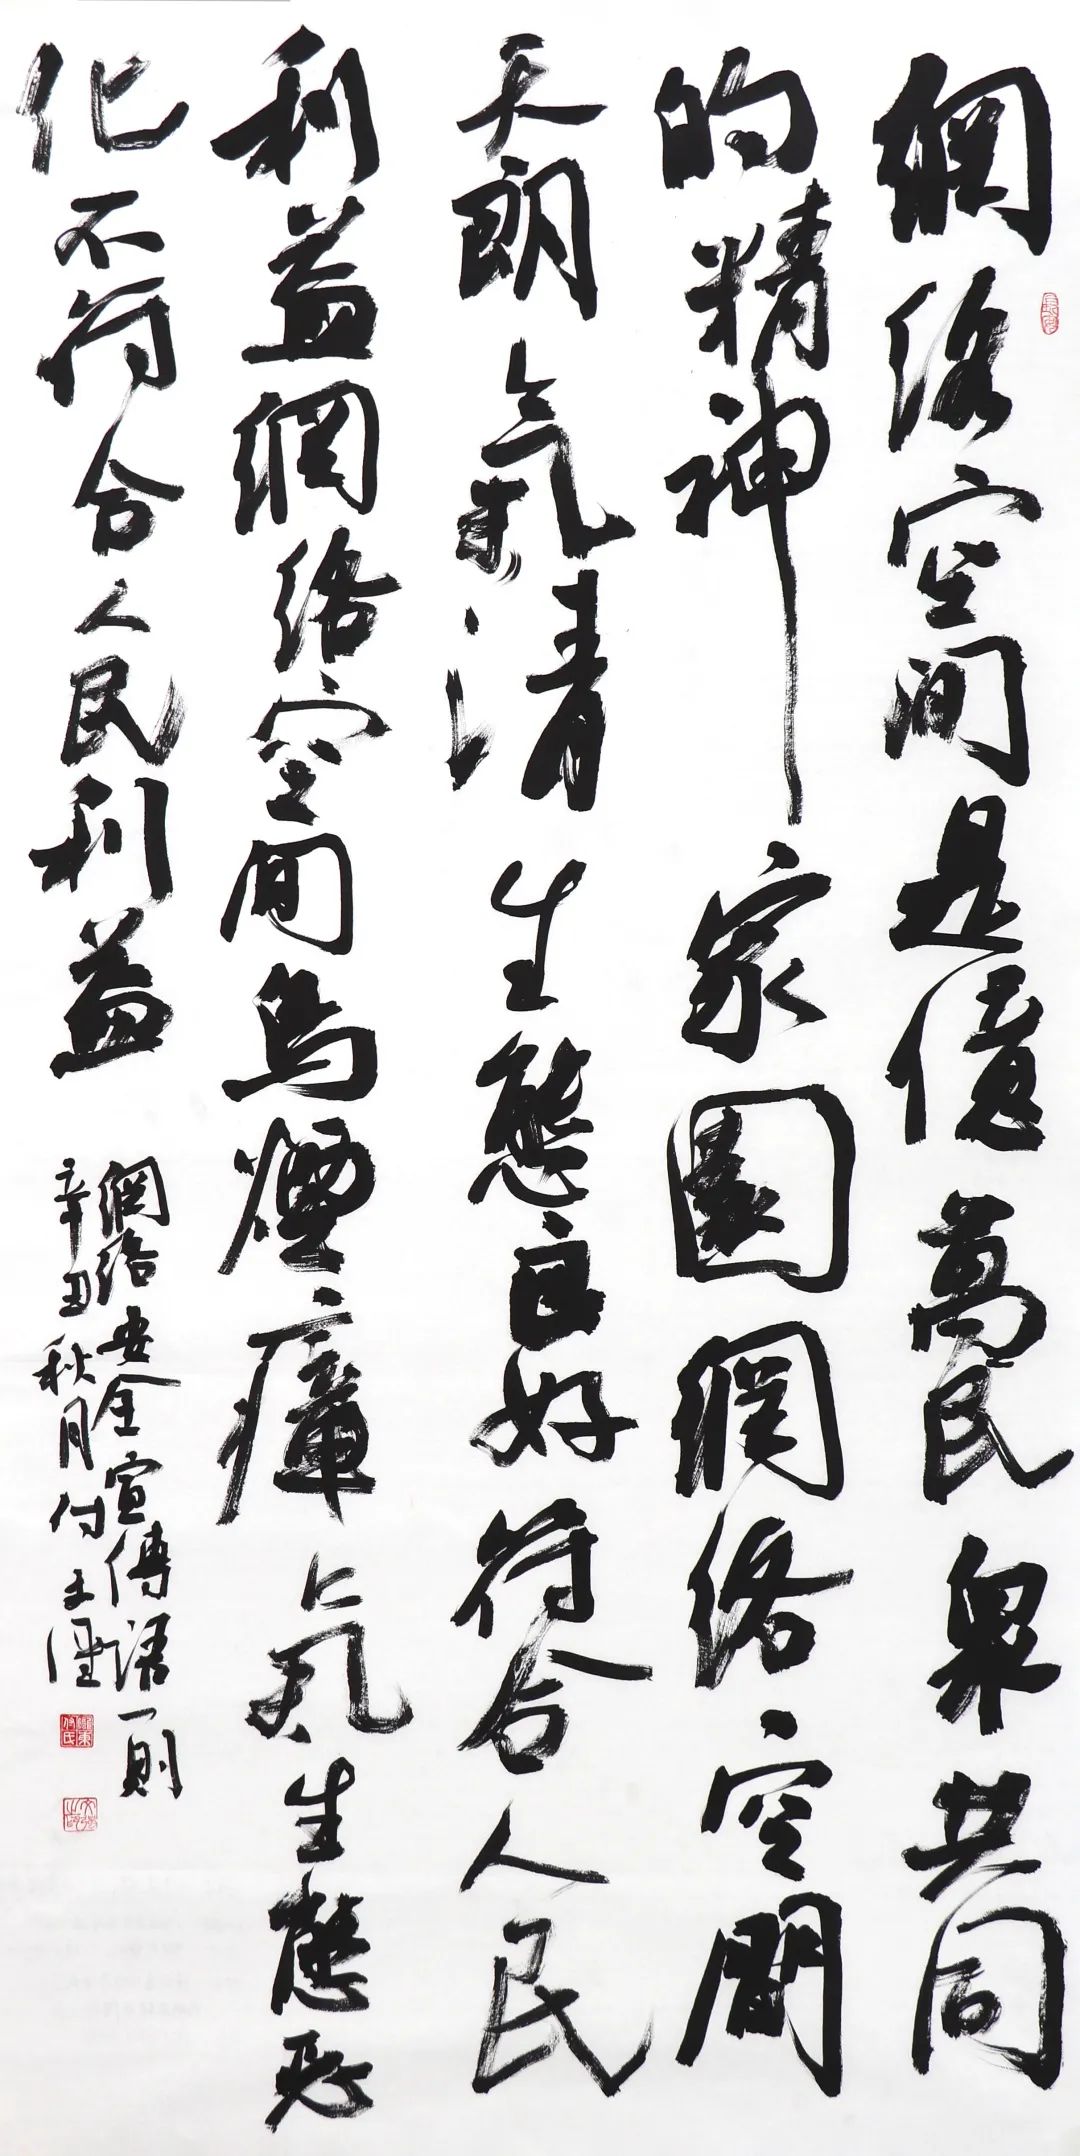 網络空间是億萬民眾共同
的精神家園網络空間
天朗氣清生態良好符合人民
利益網络空间烏煙瘴气生態恶
化不符合人民利益
網络安全宣傳語一則
辛丑秋月付文